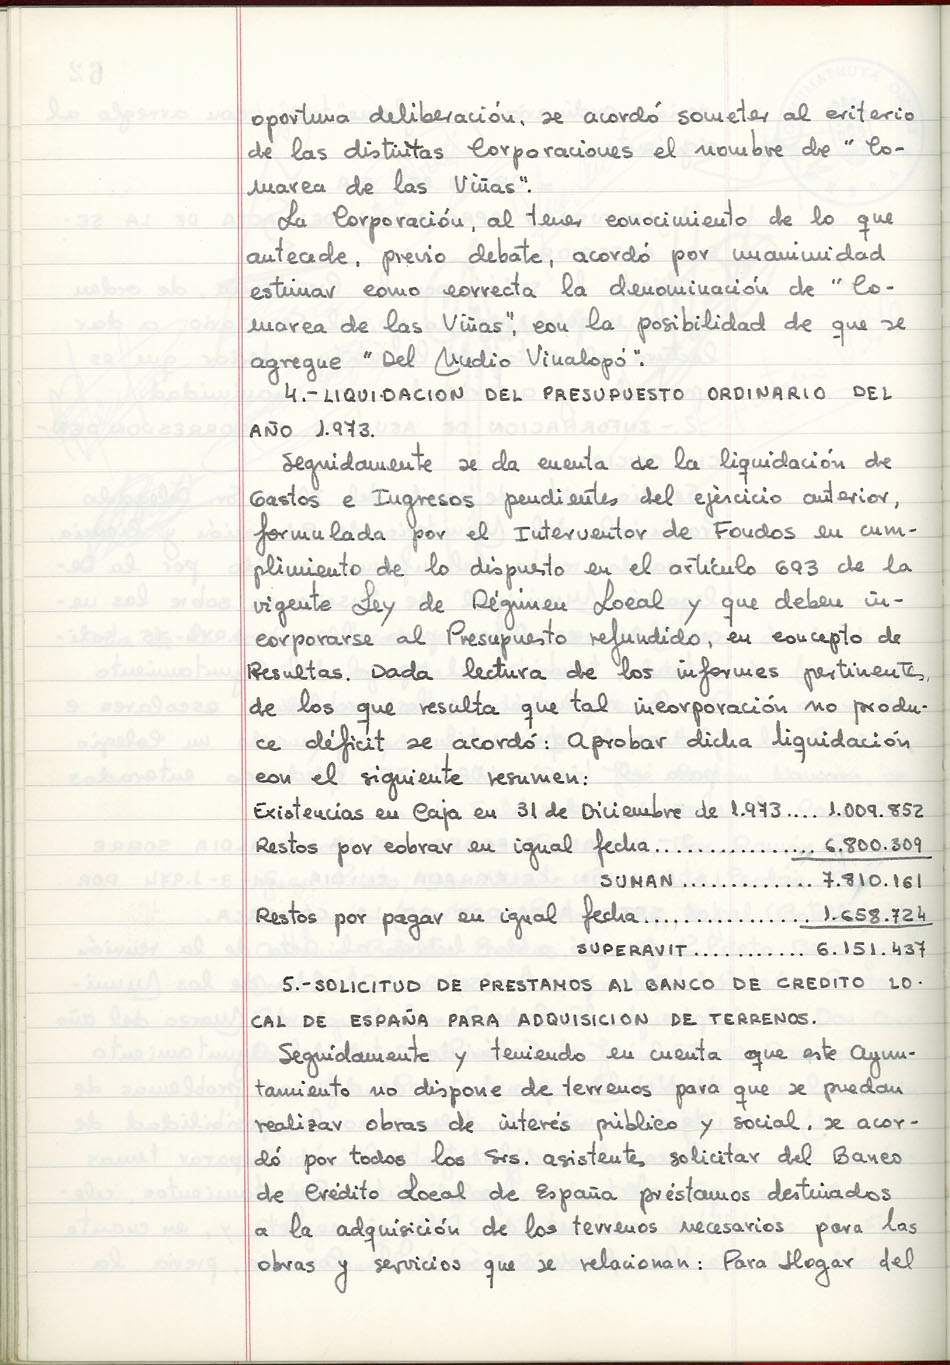 oportuna deliberación, se acordó someter al criterio
de las distintas Corporaciones el nombre de "Co-
marca de las Viñas".
La Corporación, al tener conocimiento de lo que
antecede, previo debate, acordó por unanimidad
estimar como correcta la denominación de "Co-
marca de las Viñas", con la posibilidad de que se
agregue "Del Medio Vinalopó".
4.- LIQUIDACION DEL PRESUPUESTO ORDINARIO DEL
AÑO 1.973.
Seguidamente se da cuenta de la liquidación de
Gastos e Ingresos pendientes del ejercicio anterior,
formulada por el Interventor de Fondos en cum-
plimiento de lo dispuesto en el artículo 693 de la
vigente Ley de Régimen Local y que deben in-
corporarse al Presupuesto refundido, en concepto de
Resultas. Dada lectura de los informes pertinentes,
de los que resulta que tal incorporación no produ-
ce déficit se acordó: Aprobar dicha liquidación
con el siguiente resumen:
Existencias en Caja en 31 de Diciembre de 1.973.... 1.009.852
Restos por cobrar en igual fecha................. 6.800.309
SUMAN ............. 7.810.161
Restos por pagar en igual fecha.................. 1.658.724
SUPERAVIT ........... 6.151.437
5.- SOLICITUD DE PRESTAMOS AL BANCO DE CREDITO LO-
CAL DE ESPAÑA PARA ADQUISICION DE TERRENOS.
Seguidamente y teniendo en cuenta que este Ayun-
tamiento no dispone de terrenos para que se puedan
realizar obras de interés público y social, se acor-
dó por todos los Srs. asistentes solicitar del Banco
de Crédito Local de España préstamos destinados
a la adquisición de los terrenos necesarios para las
obras y servicios que se relacionan: Para Hogar del